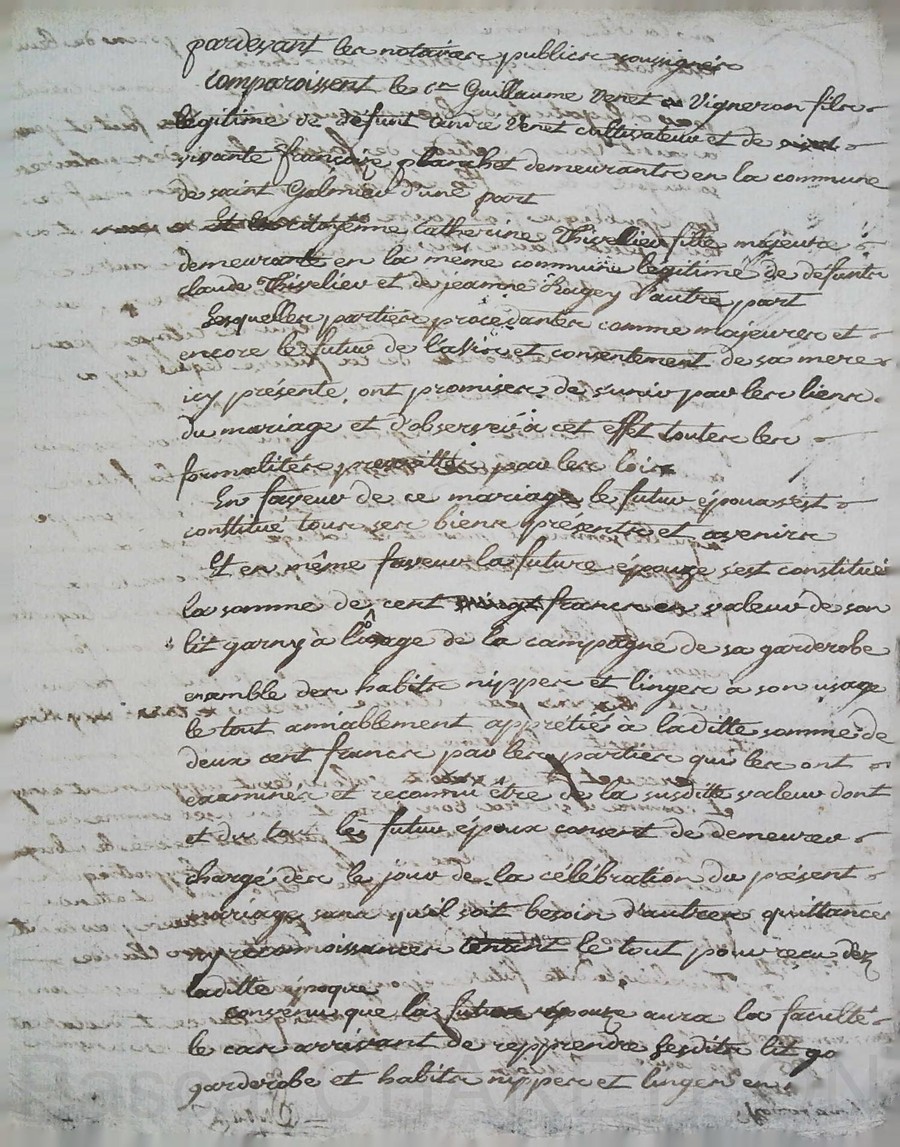 pardevant les notaires publics soussignés
Comparoissent le c.en Guillaume Venet Vigneron fils
légitime de défunt andré Venet cultivateur et de
vivante françoise planchet demeurants en la commune
de saint Galmier d'une part
Et la citoyenne Catherine Thivellier fille majeure
demeurante en la même commune légitime de défunts
claude Thivelier et de jeanne Rogey d'autre part
Lesquelles parties procédantes comme majeures et
encore le futur de l'avis et consentement de sa mere
icy présente, ont promises de s'unir par les liens
du mariage et d'observer à cet effet toutes les
formalités prescrittes par les loix
En faveur de ce mariage le futur époux s'est
constitué tous ses biens présents et avenirs
Et en même faveur la future épouze s'est constitué
la somme de cent francs en valeur de son
lit garny à l'usage de la campagne de sa garderobe
ensemble des habits nippes et linges à son usage
le tout amiablement apprétié à laditte somme de
deux cent francs par les parties qui les ont
examinés et reconnu être de la susditte valeur dont
et du tout le futur époux consent de demeurer
chargé dès le jour de la célébration du présent
mariage sans qu'il soit besoin d'autres quittances
ny reconnoissances le tout pour reçu dez
laditte époque
convenu que la future épouze aura la faculté
le cas arrivant de repprendre sesdits lit
garderobe et habits nippes et linges en